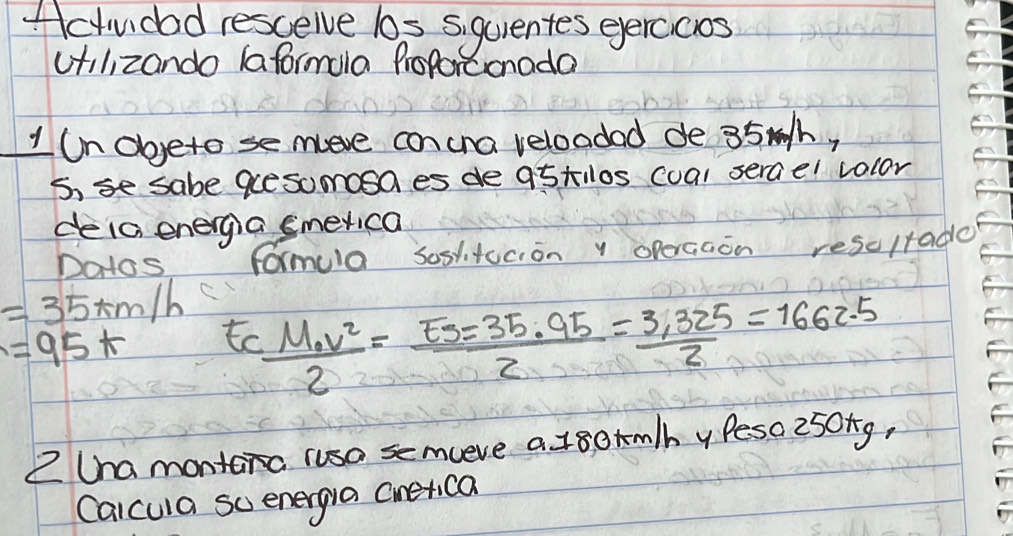 Actividad resceive los siguientes ejercicios
utilizando la formula Proporcionada
1 Un objeto se mueve con una velocidad de 35 km/h,
si se sabe que su masa es de 95 kilos cual sera el valor
de la energia cinetica
Datos Formula Sustitución y operación resultado
= 35 km/h
= 95 k Ec M.v²/2 = Es=35.95/2 = 3,325/2 = 1662.5
2 Una montaña rusa se mueve a 180 km/h y Pesa 250 kg,
Calcula su energia cinetica